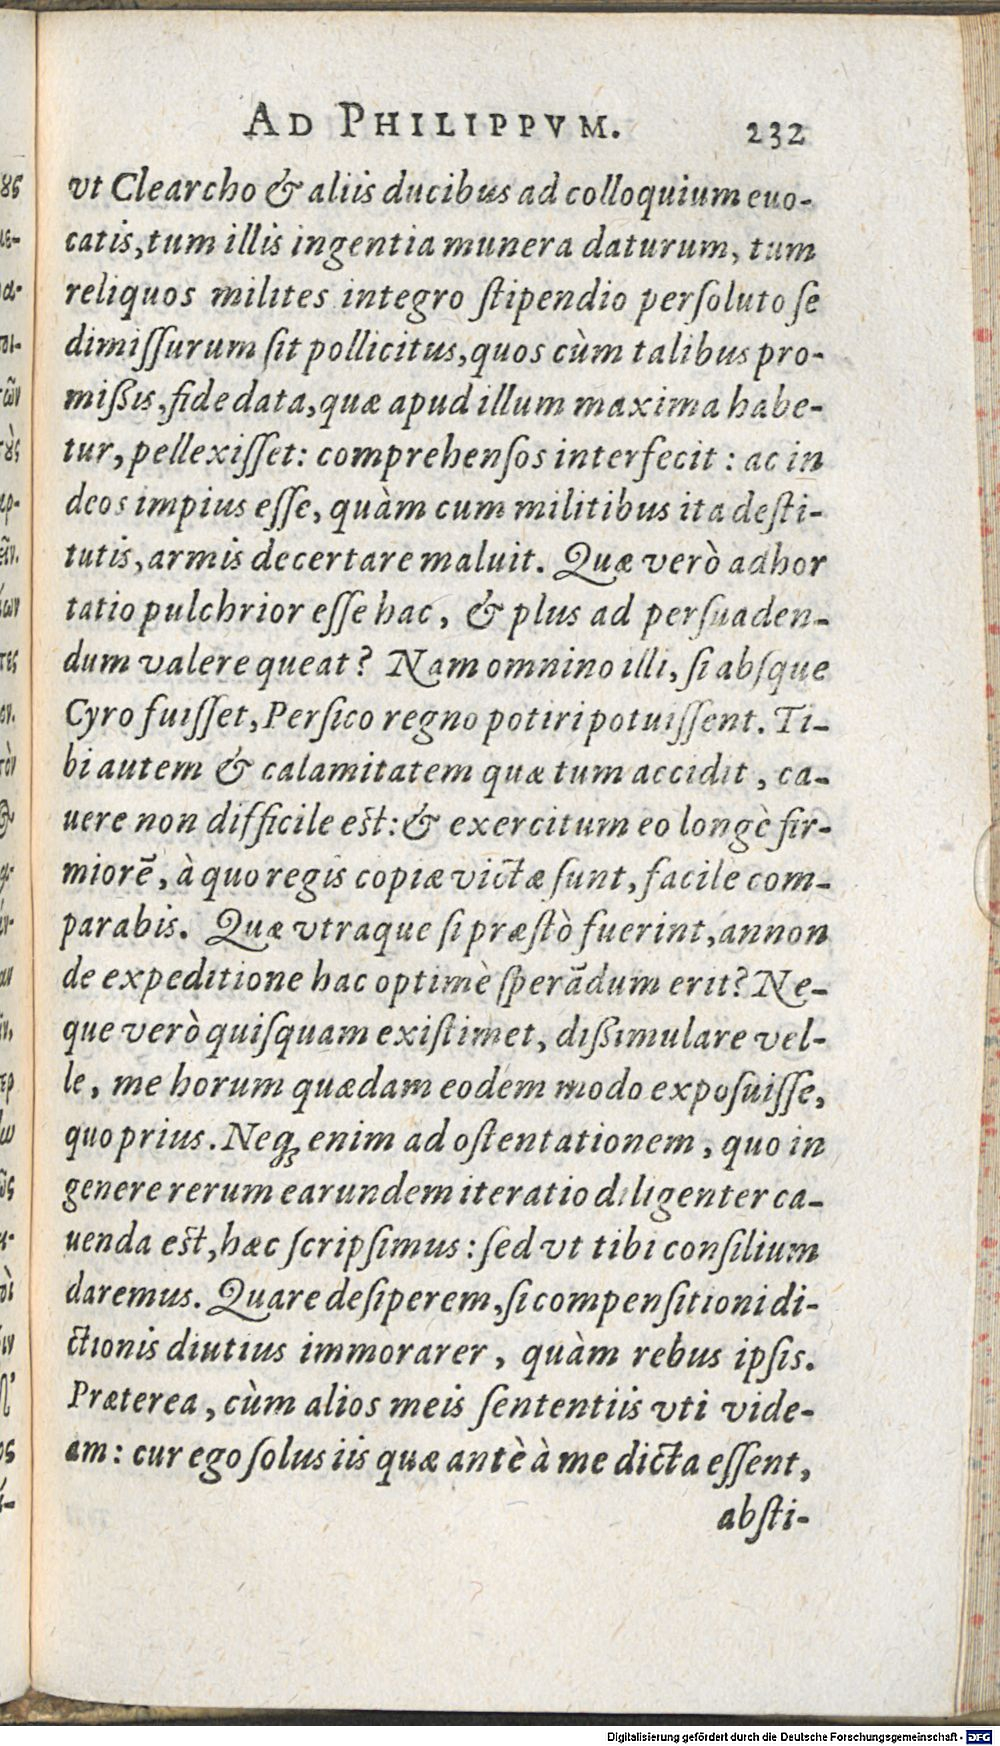 AD PHILIPPVM. 232
vt Clearcho & aliis ducibus ad colloquium euo-
catis, tum illis ingentia munera daturum, tum
reliquos milites integro ſtipendio perſoluto ſe
dimiſſurum ſit pollicitus, quos cùm talibus pro-
miſsis, fide data, quæ apud illum maxima habe-
tur, pellexiſſet: comprehenſos interfecit: ac in
deos impius eſſe, quàm cum militibus ita deſti-
tutis, armis decertare maluit. Quæ verò adhor
tatio pulchrior eſſe hac, & plus ad perſuaden-
dum valere queat? Nam omnino illi, ſi abſque
Cyro fuiſſet, Perſico regno potiri potuiſſent. Ti-
bi autem & calamitatem quæ tum accidit, ca-
uere non difficile eſt: & exercitum eo longè fir-
miorẽ, à quo regis copiæ victæ ſunt, facile com-
parabis. Quæ vtraque ſi præſtò fuerint, annon
de expeditione hac optimè ſperãdum erit? Ne-
que verò quiſquam exiſtimet, diſsimulare vel-
le, me horum quædam eodem modo expoſuiſſe,
quo prius. Neqꝫ enim ad oſtentationem, quo in
genere rerum earundem iteratio diligenter ca-
uenda eſt, hæc ſcripſimus: ſed vt tibi conſilium
daremus. Quare deſiperem, ſi compenſitioni di-
ctionis diutius immorarer, quàm rebus ipſis.
Præterea, cùm alios meis ſententiis vti vide-
am: cur ego ſolus iis quæ antè à me dicta eſſent,
abſti-
Digitalisierung gefördert durch die Deutsche Forschungsgemeinschaft - DFG